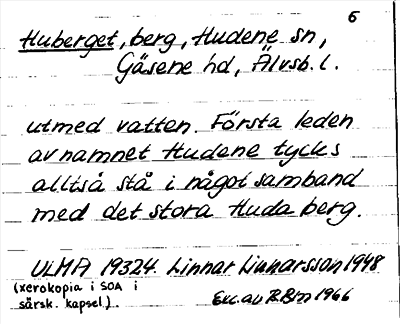 6
Huberget, berg, Hudene sn,
Gäsene hd, Älvsb. l.
utmed vatten. Första leden
av namnet Hudene tycks
alltså stå i något samband
med det stora Huda berg.
ULMA 19324. Linnar Linnarsson 1948
(xerokopia i SOA i
särsk. kapsel).
Exc. av 1966